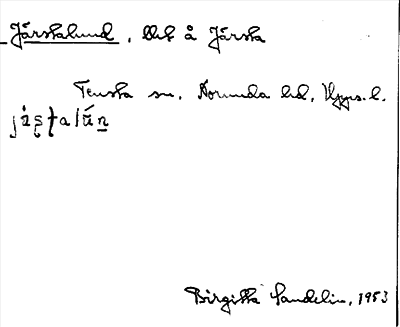 Jårstalund, bbt å Jårsta
Tensta sn, Norunda hd, Upps. l.
Birgitta Sandelin, 1953